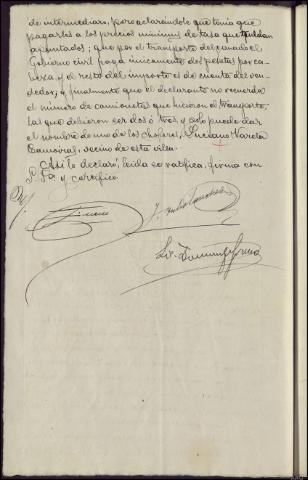 de intermediario, pero aclarandole que tenia que
pagarlas a los precios minimos de tasa que quedan
apuntados; que por el transporte del ganado el
Gobierno civil paga unicamente dos pesetas por ca-
beza, y el resto del importe es de cuenta del ven-
dedor; y finalmente que el declarante no recuerda
el número de camionetas que hicieron el transporte,
las que debieron ser dos ó tres, y solo puede dar
el nombre de uno de los choferes, Luciano Varela
vecino de esta villa.
Asi lo declaró, leida se ratifica, firma con
S. Sª y certifico.